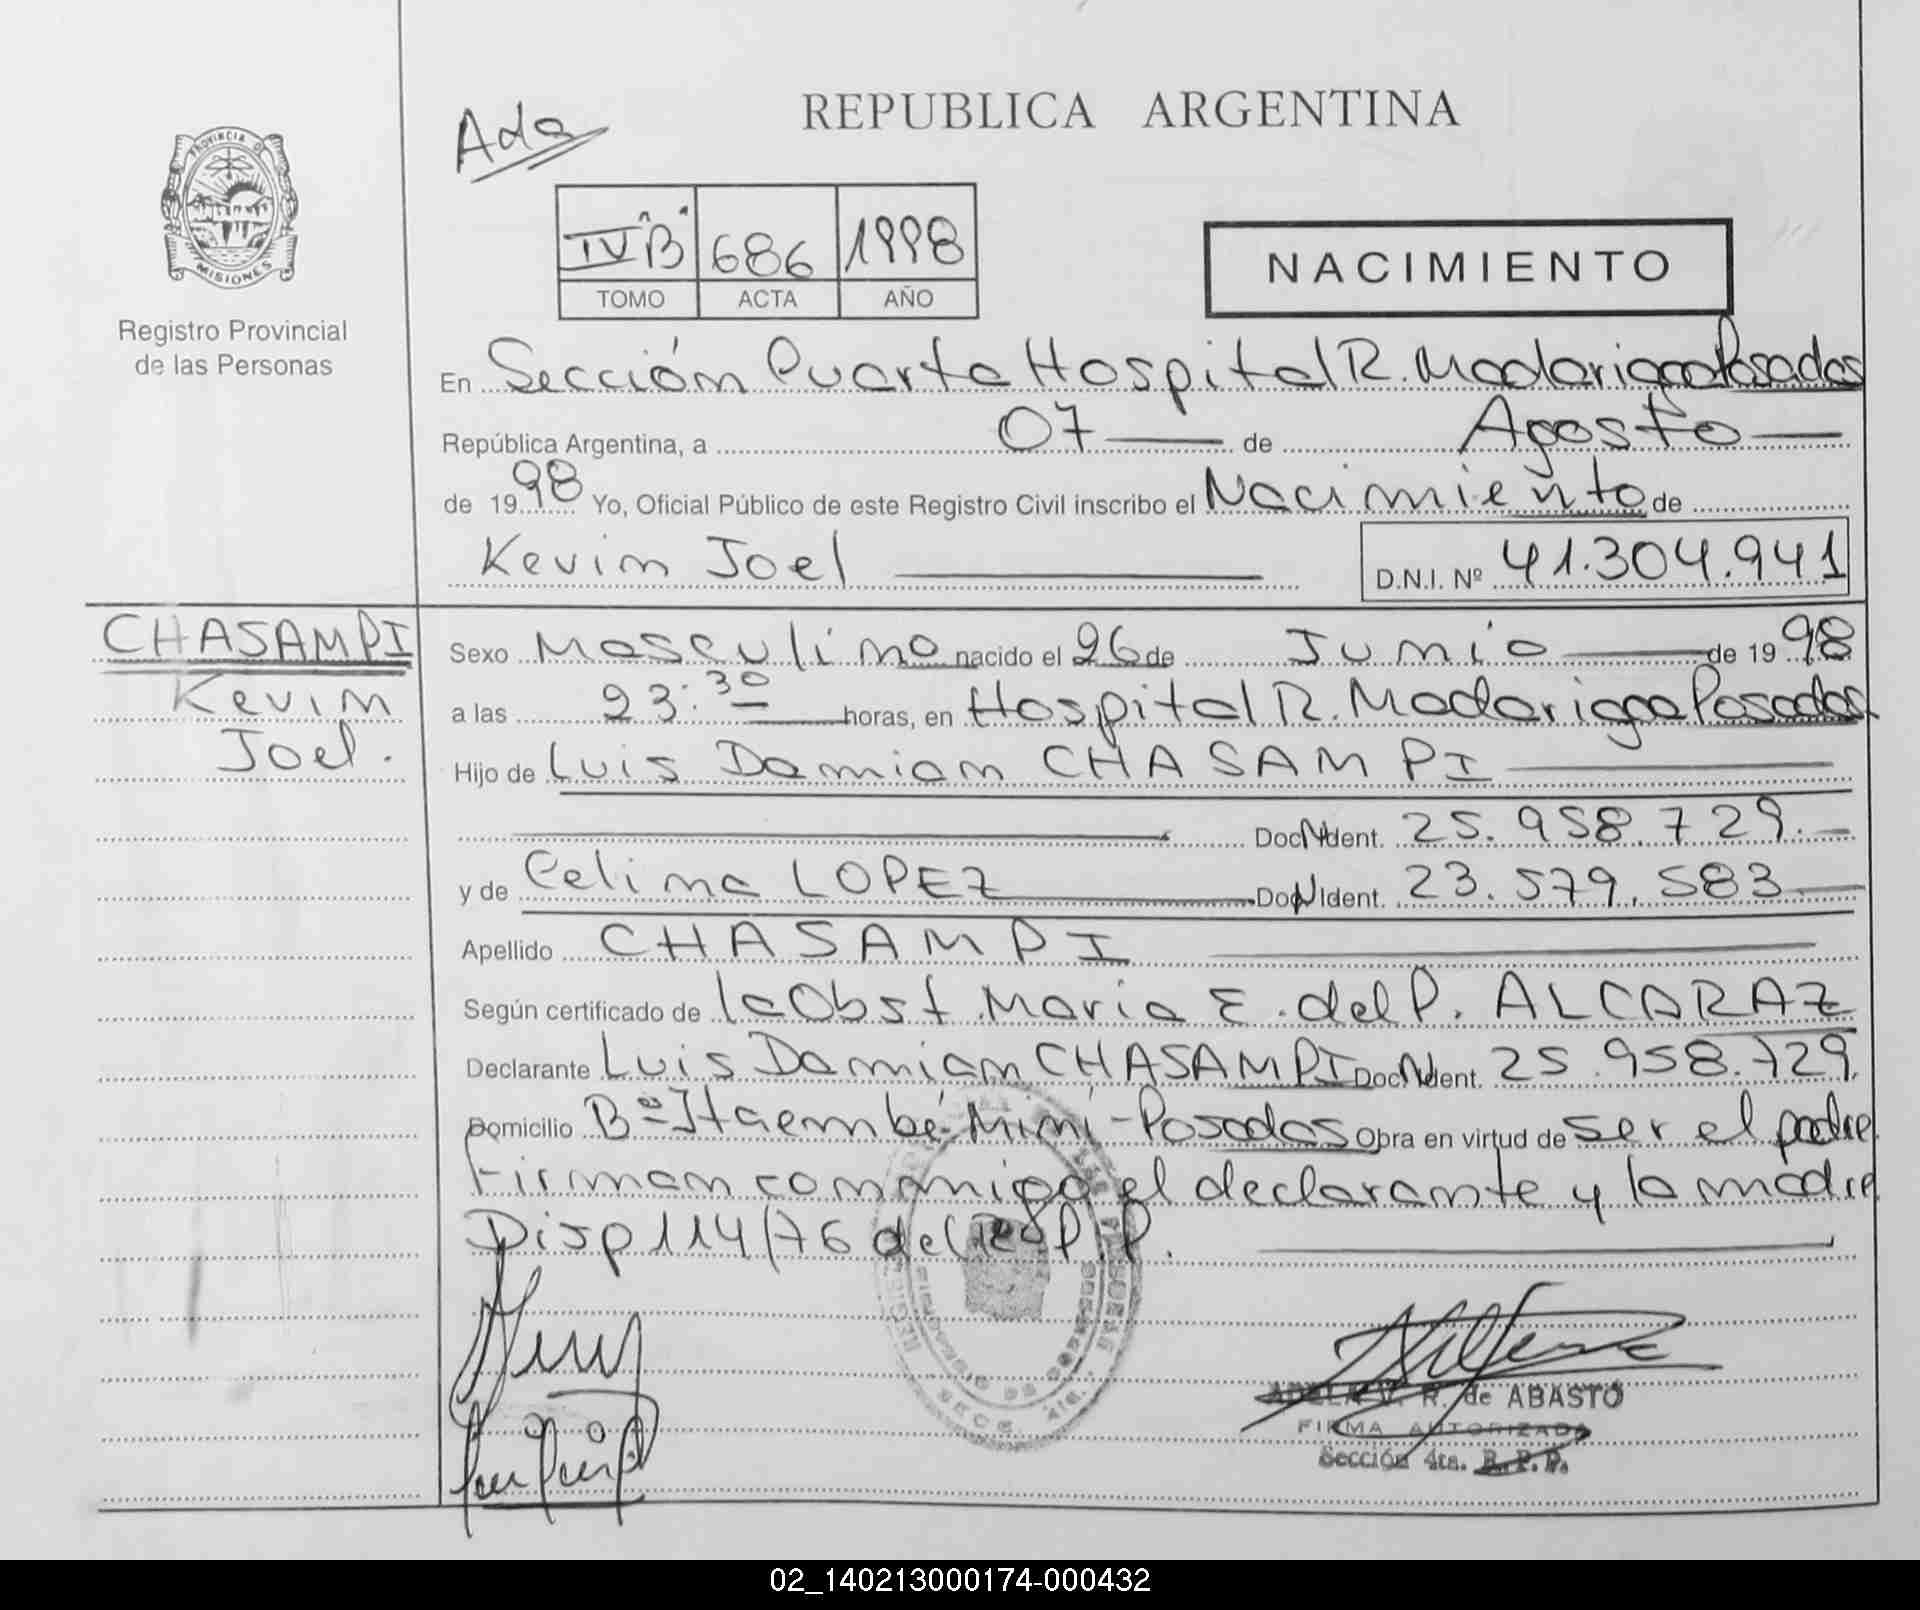 Ada
REPUBLICA ARGENTINA
PROVINCIA DE
MISIONES
Registro Provincial
de las Personas
IV "B" 686 1998
TOMO ACTA AÑO
NACIMIENTO
En Sección Cuarta Hospital R. Madariaga Posadas
República Argentina, a 07 de Agosto
de 1998 Yo, Oficial Público de este Registro Civil inscribo el Nacimiento de
Kevin Joel
D.N.I. Nº 41.304.941
CHASAMPI
Kevin
Joel.
Sexo Masculino nacido el 26 de Junio de 1998
a las 23:30 horas, en Hospital R. Madariaga Posadas
Hijo de Luis Damian CHASAMPI
Doc. Ident. 25.958.729.
y de Celina LOPEZ Doc. Ident. 23.579.583
Apellido CHASAMPI
Según certificado de la Obst. Maria E. del P. ALCARAZ
Declarante Luis Damian CHASAMPI Doc. Ident. 25.958.729.
Domicilio Bº Itaembé Miní - Posadas Obra en virtud de ser el padre
Firman conmigo el declarante y la madre
Disp 114/76 del R.P.P.
ADELA V. R. de ABASTO
FIRMA AUTORIZADA
Sección 4ta. R. P. P.
02_140213000174-000432